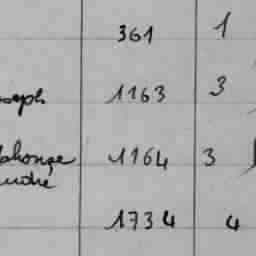 361 1
oseph 1163 3
lphonse 1164 3
André
1734 4